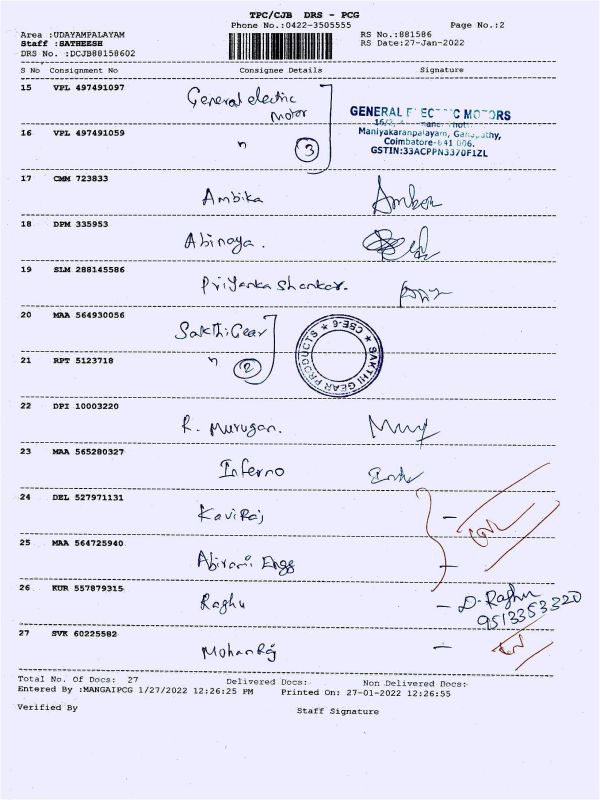 TPC/CJB DRS - PCG
Phone No.:0422-3505555 Page No.:2
Area :UDAYAMPALAYAM RS No.:881586
Staff :SATHEESH RS Date:27-Jan-2022
DRS No. :DCJB88158602
S No Consignment No Consignee Details Signature
15 VPL 497491097 General electric
Motor
GENERAL ELECTRIC MOTORS
16 VPL 497491059 " 3
Maniyakaranpalayam, Ganapathy,
Coimbatore-641 006.
GSTIN:33ACPPN3370F1ZL
17 CMM 723833
Ambika
18 DPM 335953
Abinaya.
19 SLM 288145586
Priyanka Shankar.
20 MAA 564930056
Sakthi Gear
SAKTHI GEAR PRODUCTS ★ CBE-6 ★
21 RPT 5123718 " 2
22 DPI 10003220
R. Murugan.
23 MAA 565280327
Inferno
24 DEL 527971131
KaviRaj -
25 MAA 564725940
Abirami Engg -
26 KUR 557879315
Raghu - D. Raghu
9513353320
27 SVK 60225582
MohanRaj -
Total No. Of Docs: 27 Delivered Docs: Non Delivered Docs:
Entered By :MANGAIPCG 1/27/2022 12:26:25 PM Printed On: 27-01-2022 12:26:55
Verified By Staff Signature